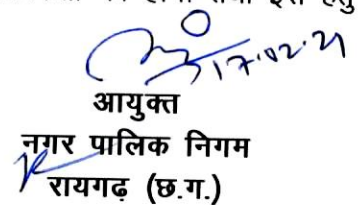 तथा इस हेतु
17.02.21
आयुक्त
नगर पालिक निगम
रायगढ़ (छ.ग.)